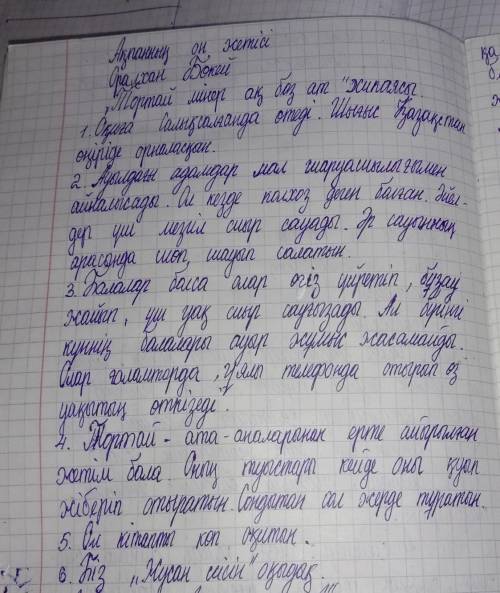 Ақпанның он жетісі
Оралхан Бөкей
„Тортай мінер ақ боз ат" хикаясы.
1. Оқиға Самыссағанда өтеді. Шығыс Қазақстан
өңіріде орналасқан.
2. Ауылдағы адамдар мал шаруашылығымен
айналысады. Ол кезде колхоз деген болған. Әйел-
дер үш мезгіл сиыр сауады. Әр сауынның
арасында шөп шауып салатын.
3. Балалар болса олар өгіз үйретіп, бұзау
жайып, үш уақ сиыр сауғызады. Ал бүгінгі
күннің балалары ауар жұмыс жасамайды.
Олар ғаламторда, ұялы телефонда отырып өз
уақытың өткізеді.
4. Тортай - ата-аналарынан ерте айырылған
жетім бала. Оның туыстары кейде оны қуып
жіберіп отыратын. Сондытан сол жерде тұратын.
5. Ол кітапты көп оқитын.
6. Біз „Жусан иісін" оқыдақ.
қа